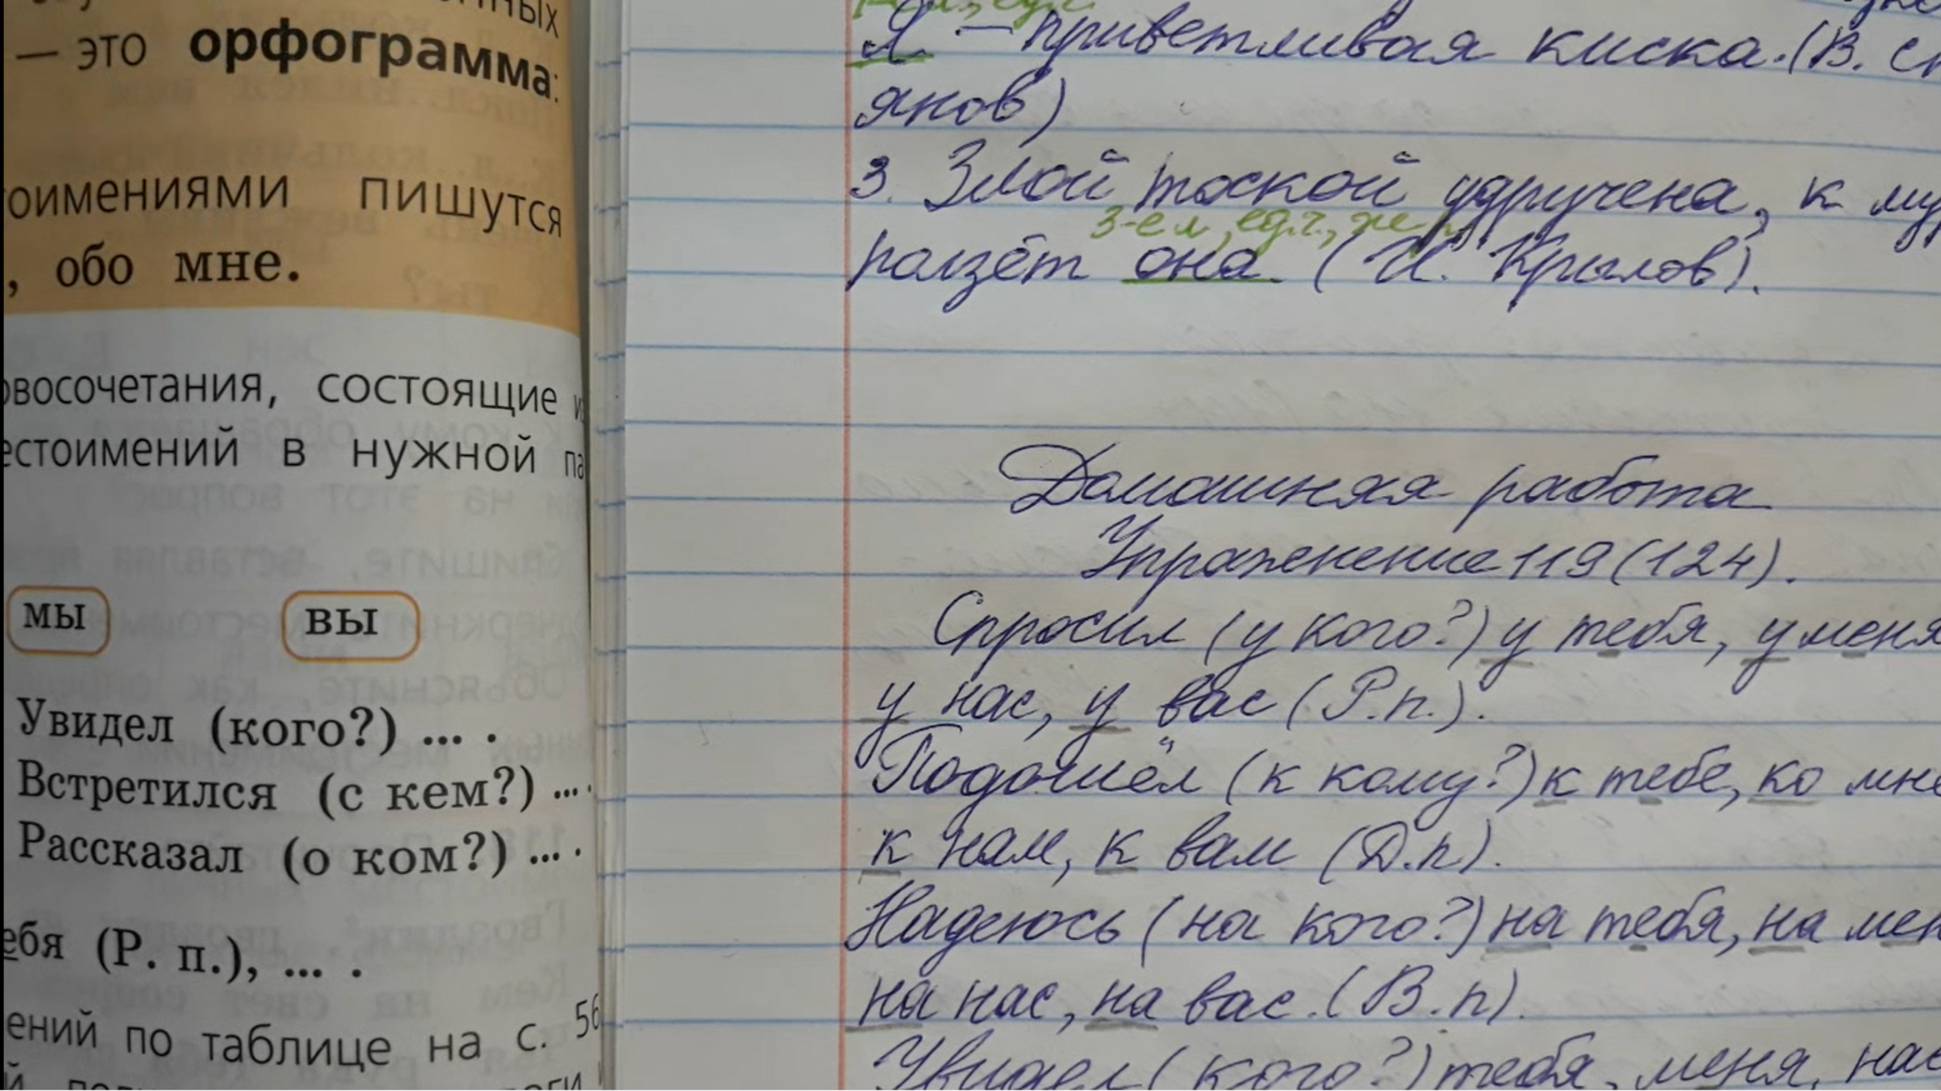 — это орфограмма:
оимениями пишутся
, обо мне.
восочетания, состоящие
естоимений в нужной
мы вы
Увидел (кого?) ... .
Встретился (с кем?) ... .
Рассказал (о ком?) ... .
ебя (Р. п.), ... .
ений по таблице на с. 56
Я – приветливая киска. (В. Ст
янов)
3. Злой тоской удручена, к му
3-е л., ед.ч., же
ползёт она. (И. Крылов).
Домашняя работа
Упражнение 119 (124).
Спросил (у кого?) у тебя, у меня
у нас, у вас (Р.п.).
Подошёл (к кому?) к тебе, ко мне
к нам, к вам (Д.п).
Надеюсь (на кого?) на тебя, на мен
на нас, на вас. (В.п).
Увидел (кого?) тебя, меня, нас